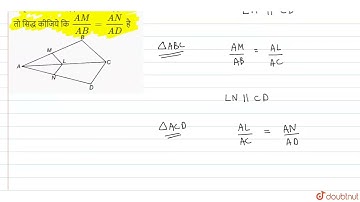 LN || CD
तो सिद्ध कीजिये कि AM/AB = AN/AD है
B
M
A
L
C
N
D
△ABC AM/AB = AL/AC
LN || CD
△ACD AL/AC = AN/AD
doubtnut